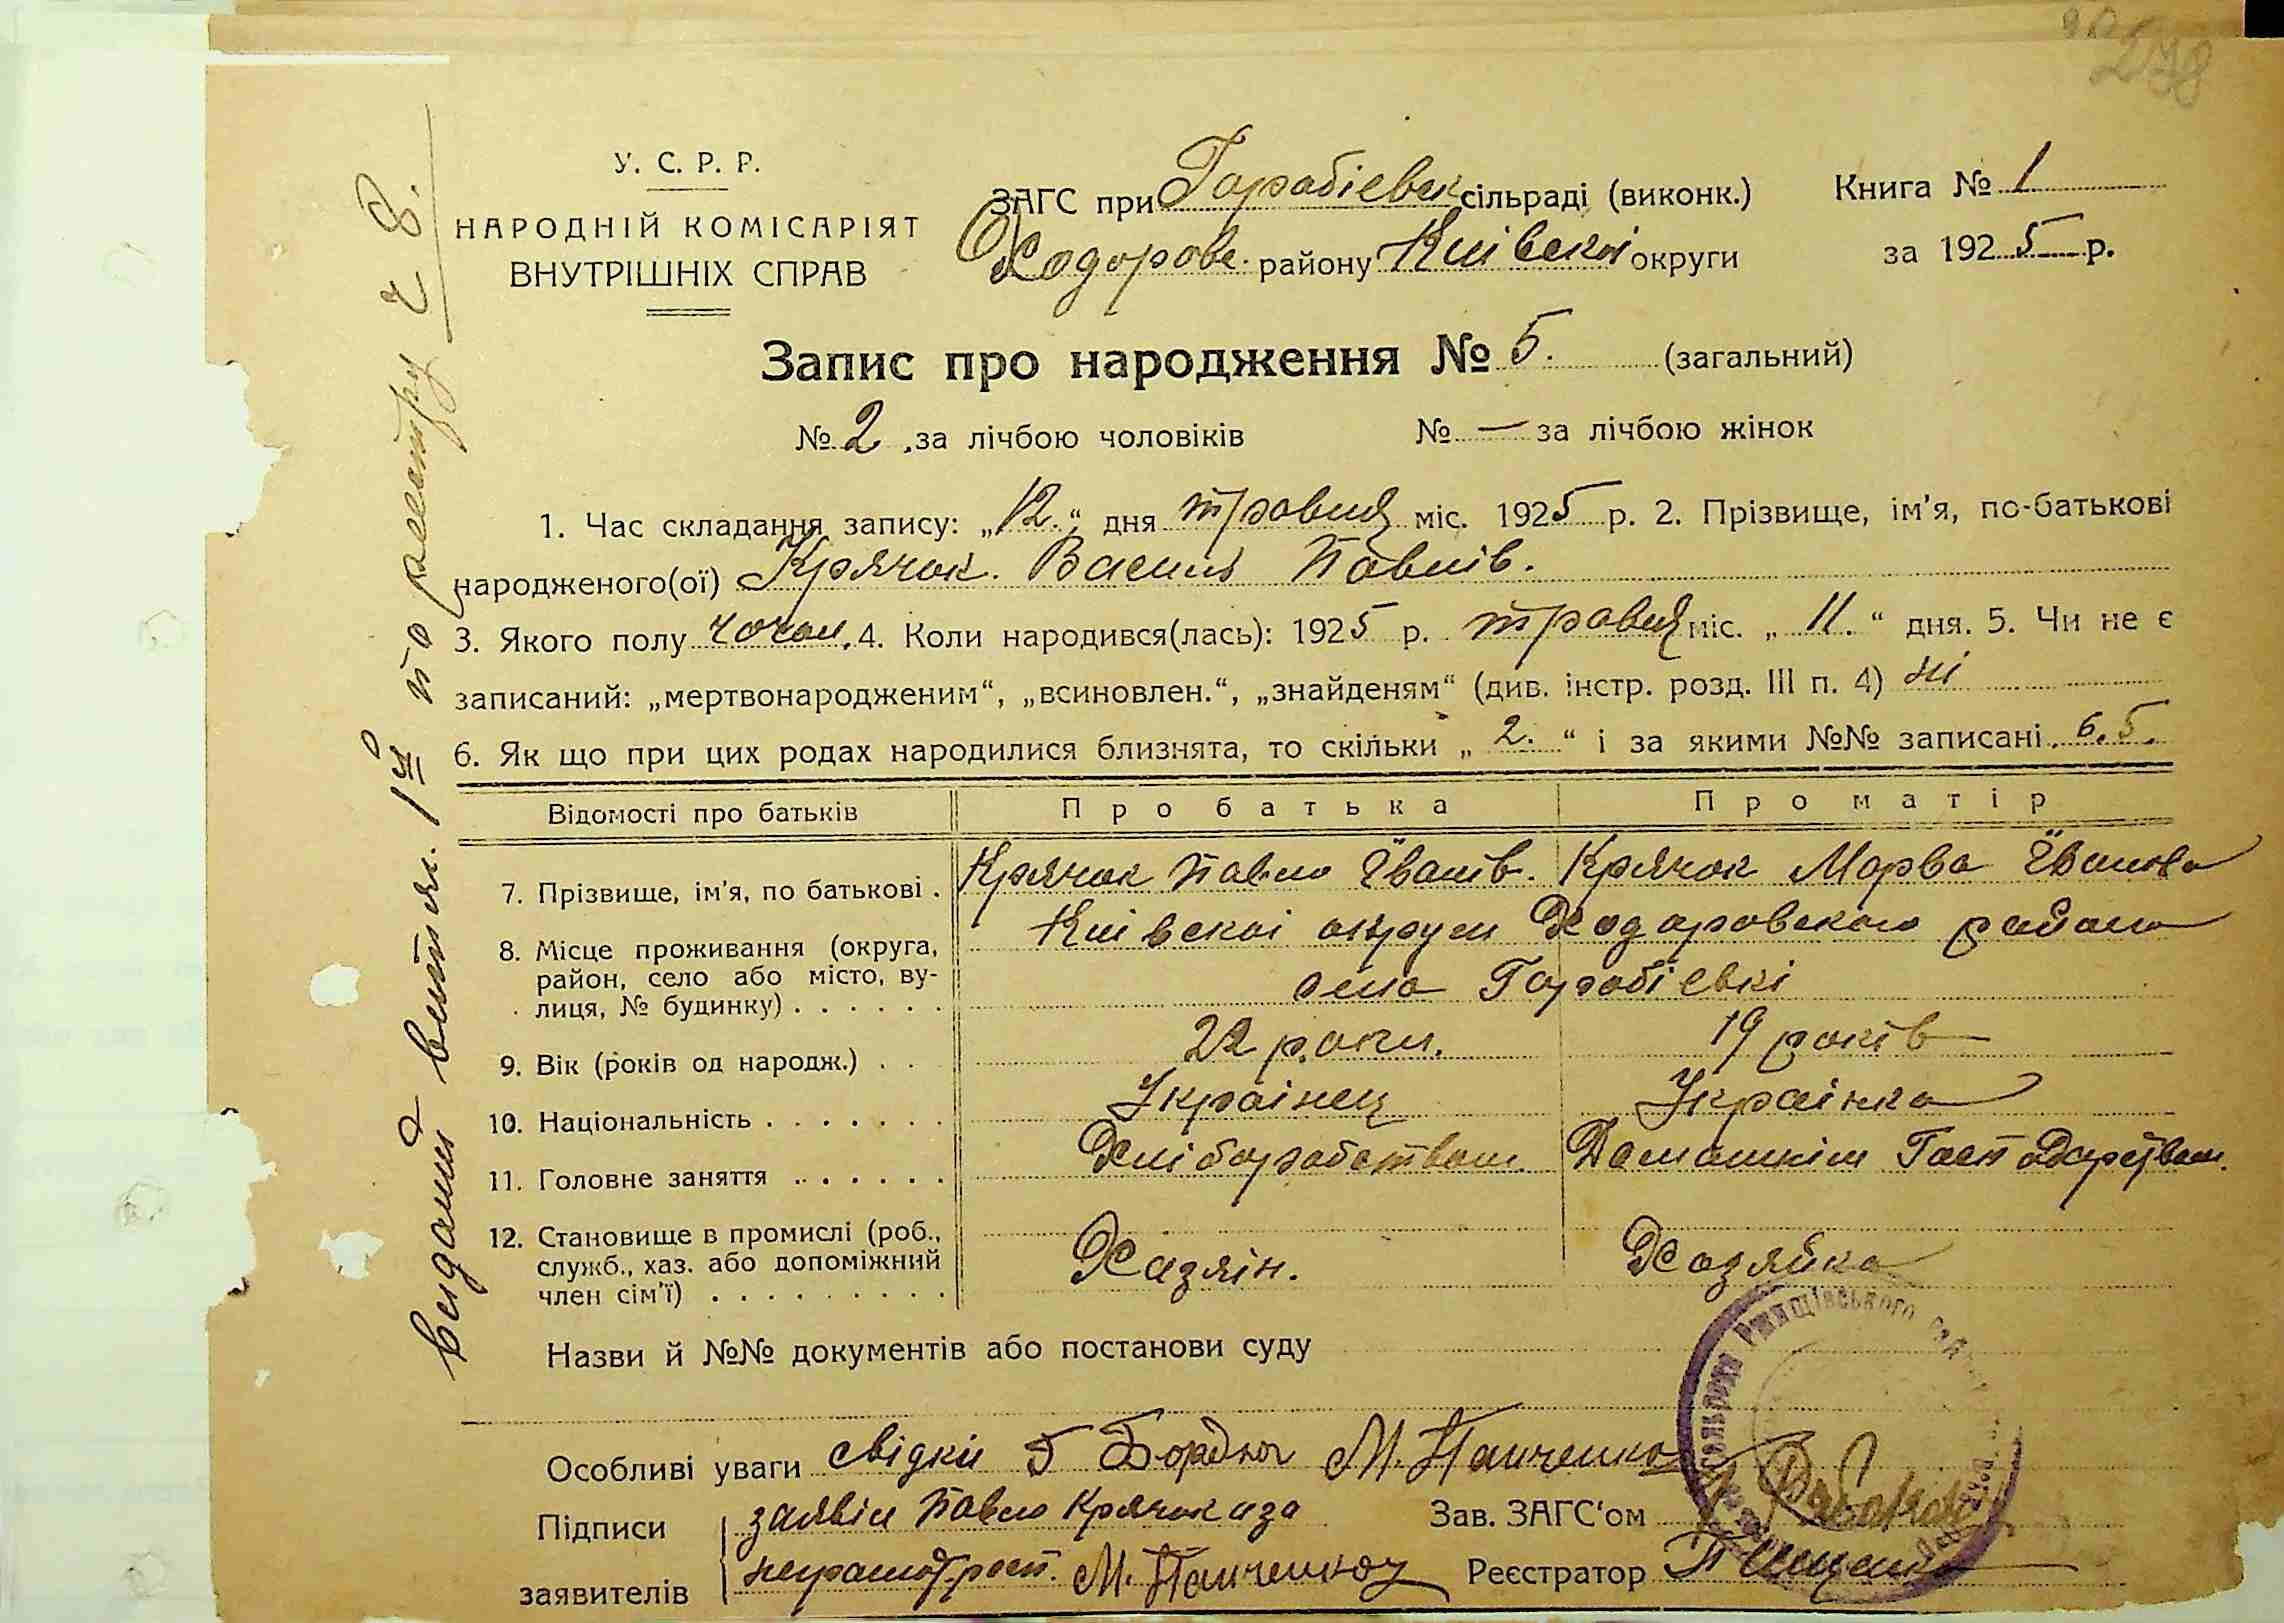 278
У. С. Р. Р.
НАРОДНІЙ КОМІСАРІЯТ
ВНУТРІШНІХ СПРАВ
ЗАГС при Горобіевск сільраді (виконк.)
Ходорове. району Київської округи
Книга № 1
за 1925 р.
Запис про народження № 5. (загальний)
№ 2 за лічбою чоловіків № — за лічбою жінок
1. Час складання запису: „12.“ дня травня міс. 1925 р. 2. Прізвище, ім'я, по-батькові
народженого(ої) Крячок. Василь Павлів.
3. Якого полу чочол. 4. Коли народився(лась): 1925 р. травня міс. „11.“ дня. 5. Чи не є
записаний: „мертвонародженим“, „всиновлен.“, „знайденям“ (див. інстр. розд. III п. 4) ні
6. Як що при цих родах народилися близнята, то скільки „2.“ і за якими №№ записані. 6. 5.
Відомості про батьків Про батька Про матір
7. Прізвище, ім'я, по батькові . Крячок Павло Іванів. Крячок Марва Іванова
8. Місце проживання (округа, район, село або місто, ву-
лиця, № будинку) . . . . . . Київскоі округи Ходоровского района
села Горобіевкі
9. Вік (років од народж.) . . 22 роки. 19 років
10. Національність . . . . . . . Украінец Украінка
11. Головне заняття . . . . . . Хліборобством Домашнім Господарством.
12. Становище в промислі (роб.,
служб., хаз. або допоміжний
член сім'ї) . . . . . . . . . Хазяін. Хозяйка
Назви й №№ документів або постанови суду
Особливі уваги свідки М. Панченко
Підписи заявителів заявил Павло Крячок аза
неграмот. росп. М. Панченко
Зав. ЗАГС'ом
Реєстратор
Ржищівського
виданий витяг. 1й по реєстру ч 8.